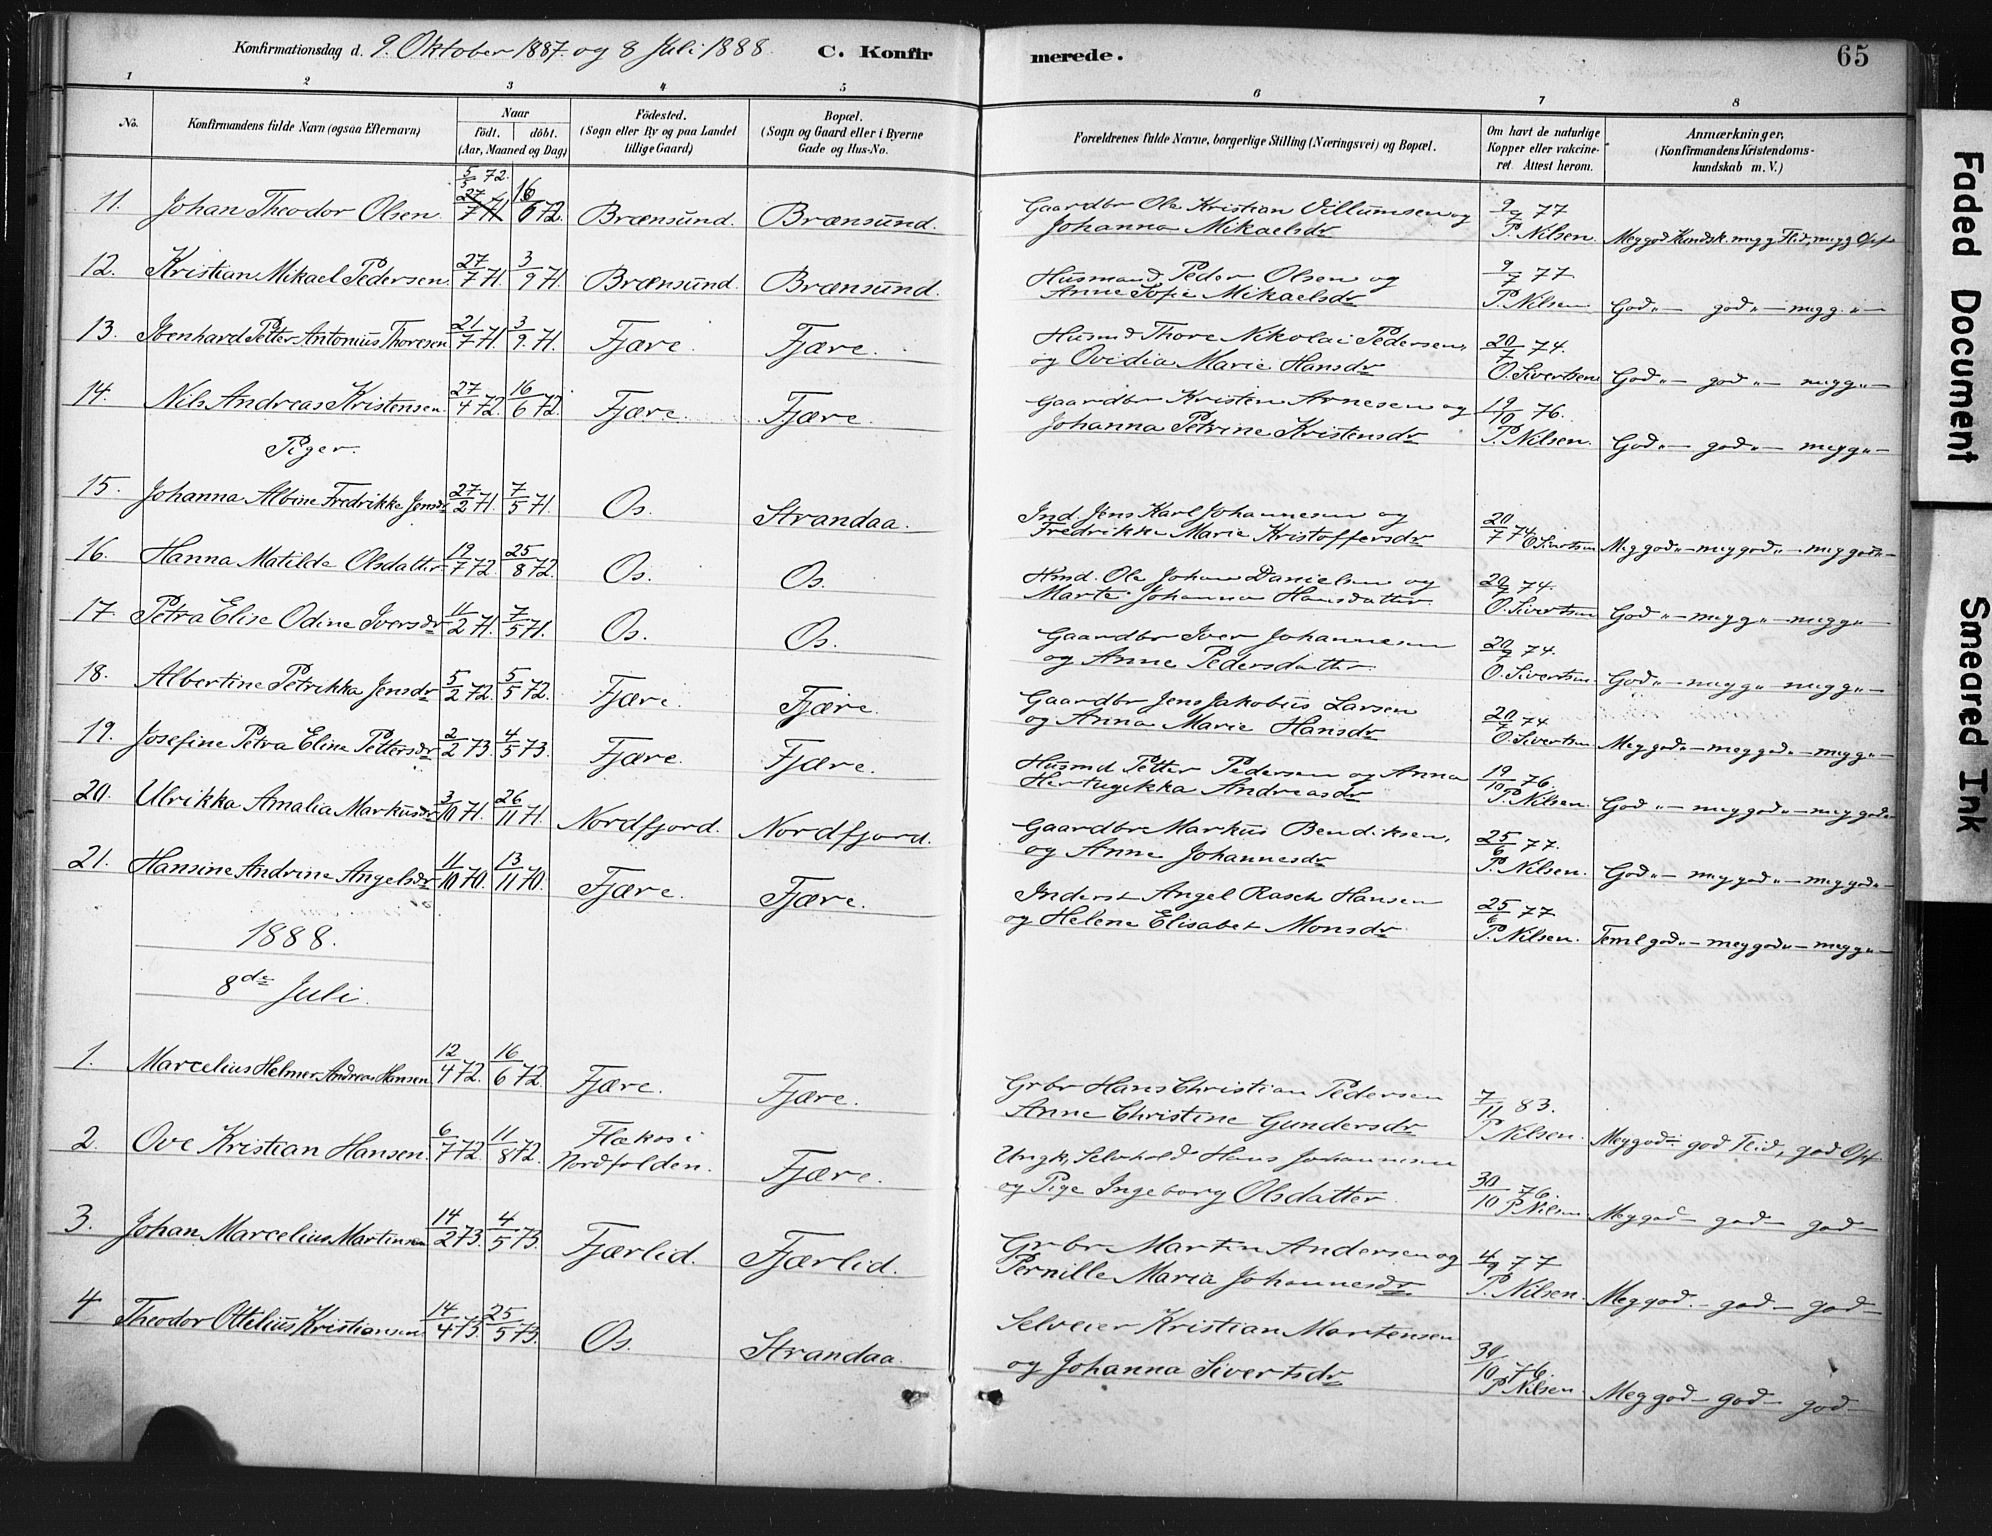 Konfirmationsdag d. 9. Oktober 1887. og 8 Juli 1888. C. Konfir merede. 65
1 2 3 4 5 6 7 8
No. Konfirmandens fulde Navn (ogsaa Efternavn) Naar födt. | döbt. (Aar, Maaned og Dag) Födested. (Sogn eller By og paa Landet tillige Gaard) Bopæl. (Sogn og Gaard eller i Byerne Gade og Hus-No. Forældrenes fulde Navne, borgerlige Stilling (Næringsvei) og Bopæl. Om havt de naturlige Kopper eller vakcineret. Attest herom. Anmærkninger, (Konfirmandens Kristendomskundskab m. V.)
11. Johan Theodor Olsen 5/5 72. 27/7 71 16/6 72. Brænsund. Brænsund. Gaardbr Ole Kristian Villumsen og 9/7 77
Johanna Mikaelsdr P. Nilsen. Meg god Kundsk. meg g Flid, meg g Opf
12. Kristian Mikael Pedersen 27/7 71. 3/9 71. Brænsund. Brænsund. Husmand Peder Olsen og 9/7 77
Anne Sofie Mikaelsdr P. Nilsen God „ — god „ — megg. „ —
13. Ibenhard Petter Antonius Thoresen 21/7 71. 3/9. 71. Fjære. Fjære. Husmd Thore Nikolai Pedersen, 20/7 74.
og Ovidia Marie Hansdr O. Sivertsen God „ — god „ — megg „ —
14. Nils Andreas Kristensen 27/4 72. 16/6 72. Fjære. Fjære. Gaardbr Kristen Arnesen og 19/10 76.
Johanna Petrine Kristensdr P. Nilsen. God „ — god „ — megg „ —
Piger.
15. Johanna Albine Fredrikke Jensdr 27/2 71. 7/5 71. Os. Strandaa. Ind. Jens Karl Johannesen og 20/7 74
Fredrikke Marie Kristoffersdr O Sivertsen Meg god „ — meg god „ — meg god „ —
16. Hanna Matilde Olsdatter 19/7 72. 25/8 72. Os. Os. Hmd. Ole Johan Danielsen og 20/7 74.
Marte Johanna Hansdatter O. Sivertsen God „ — megg „ — megg „ —
17. Petra Elise Odine Iversdr 11/2 71. 7/5 71. Os. Os. Gaardbr Iver Johannesen 20/7 74.
og Anne Pedersdatter O. Sivertsen God „ — megg „ — megg „ —
18. Albertine Petrikka Jensdr 5/2 72. 5/5 72. Fjære. Fjære. Gaardbr Jens Jakobus Larsen 20/7 74.
og Anna Marie Hansdr O. Sivertsen Meg god „ — meg god „ — megg „ —
19. Josefine Petra Eline Pettersdr 2/2 73. 4/5 73. Fjære. Fjære. Husmd Petter Pedersen og Anna 19/10 76.
Hertugikka Andreasdr P. Nilsen. God „ — meg god „ — meg god „
20. Ulrikka Amalia Markusdr 3/10 71. 26/11 71. Nordfjord. Nordfjord. Gaardbr Markus Bendiksen, 25/6 77.
og Anne Johannesdr P. Nilsen. God „ — meg god „ — meg god „ —
21. Hansine Andrine Angelsdr 11/10 70. 13/11 70. Fjære. Fjære. Inderst Angel Rasch Hansen 25/6 77
og Helene Elisabet Monsdr P. Nilsen. Teml god „ — meg god „ — megg „ —
1888.
8de Juli.
1. Marcelius Helmer Andreas Hansen 12/4 72. 16/6 72. Fjære. Fjære. Grbr Hans Christian Pedersen 7/11 83.
Anne Christine Gundersdr P Nilsen. Meg god — god Flid, god Opf
2. Ove Kristian Hansen 6/7 72. 11/8 72. Flakos i Nordfolden. Fjære. Ungk. Selvhold Hans Johannesen 30/10 76.
og Pige Ingeborg Olsdatter P Nilsen Meg god — god — god —
3. Johan Marcelius Martinsen 14/2 73. 4/5 73. Fjærlid. Fjærlid. Grbr Martin Andersen og 4/9 77
Pernille Maria Johannesdr P. Nilsen. Meg god — god — god —
4 Theodor Ottelius Kristiansen 14/4 73. 25/5 73. Os. Strandaa. Selveier Kristian Mortensen
og Johanna Sivertsdr 30/10 76. P Nilsen Meg god — god — god —
Faded Document
Smeared Ink